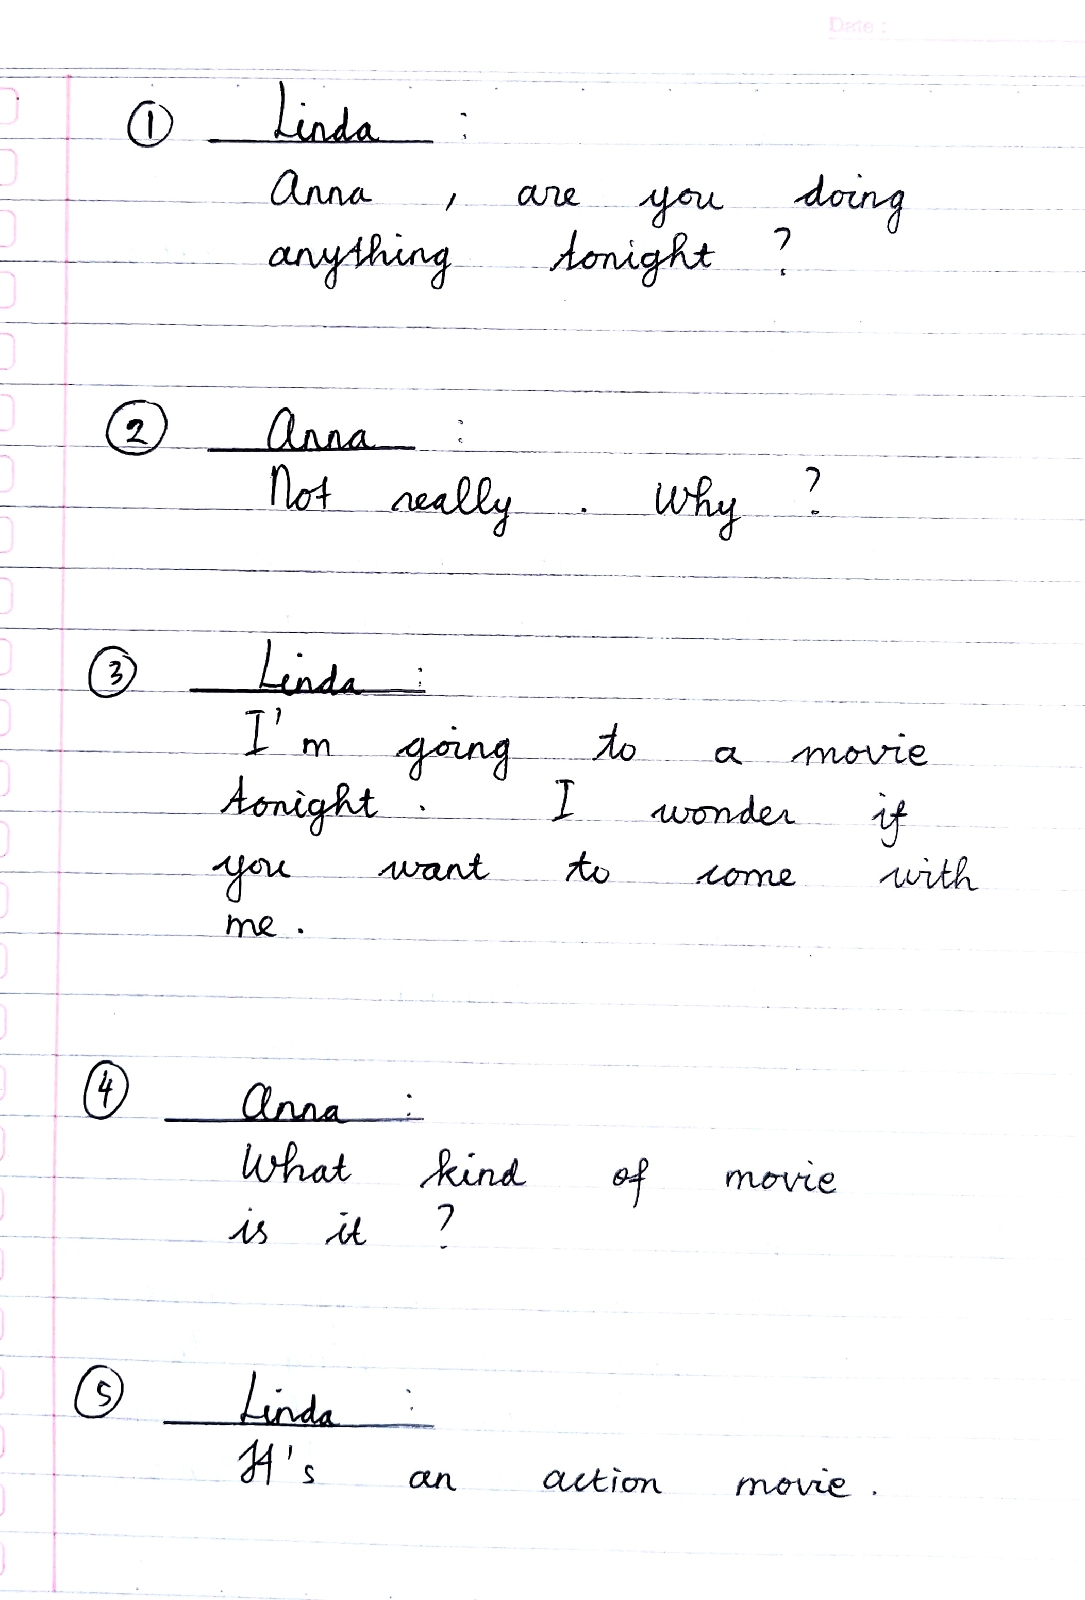 Date :
① Linda :
Anna , are you doing
anything tonight ?
② Anna :
Not really . Why ?
③ Linda :
I'm going to a movie
tonight . I wonder if
you want to come with
me .
④ Anna :
What kind of movie
is it ?
⑤ Linda :
It's an action movie .